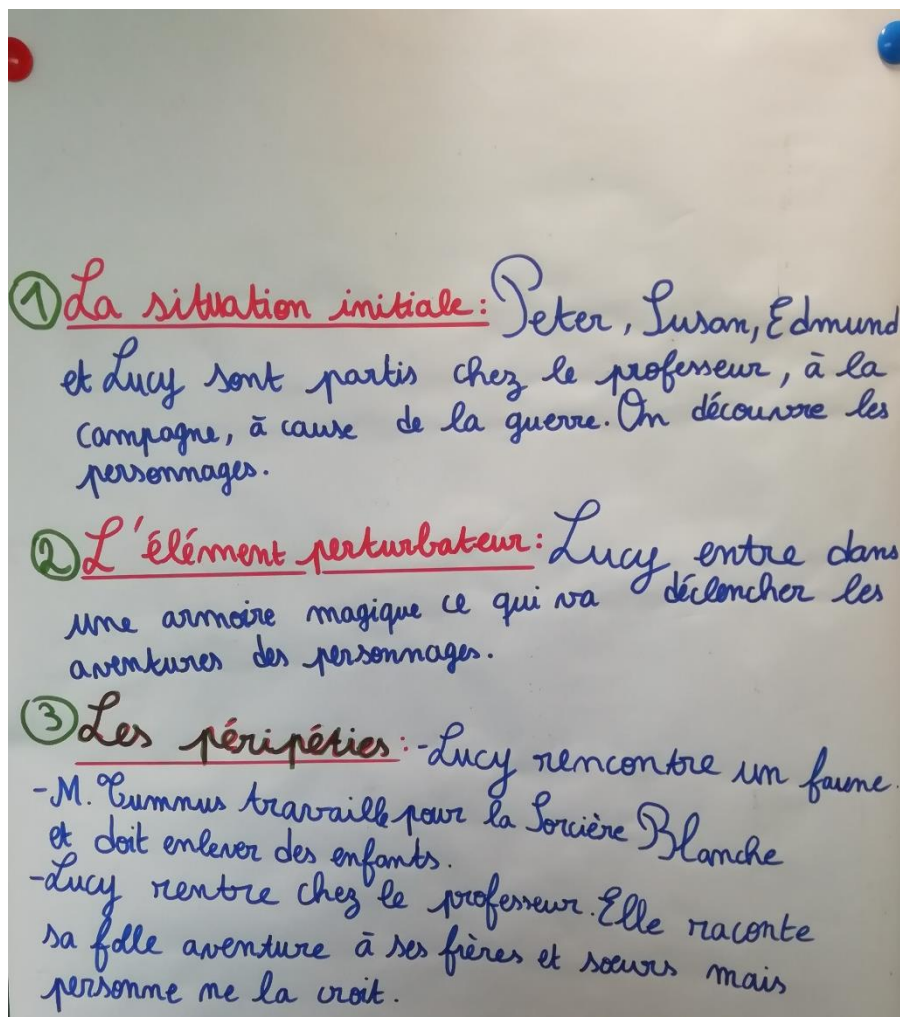 ① La situation initiale: Peter, Susan, Edmund
et Lucy sont partis chez le professeur, à la
campagne, à cause de la guerre. On découvre les
personnages.
② L'élément perturbateur: Lucy entre dans
une armoire magique ce qui va déclencher les
aventures des personnages.
③ Les péripéties: -Lucy rencontre un faune.
-M. Tumnus travaille pour la Sorcière Blanche
et doit enlever des enfants.
-Lucy rentre chez le professeur. Elle raconte
sa folle aventure à ses frères et soeurs mais
personne ne la croit.